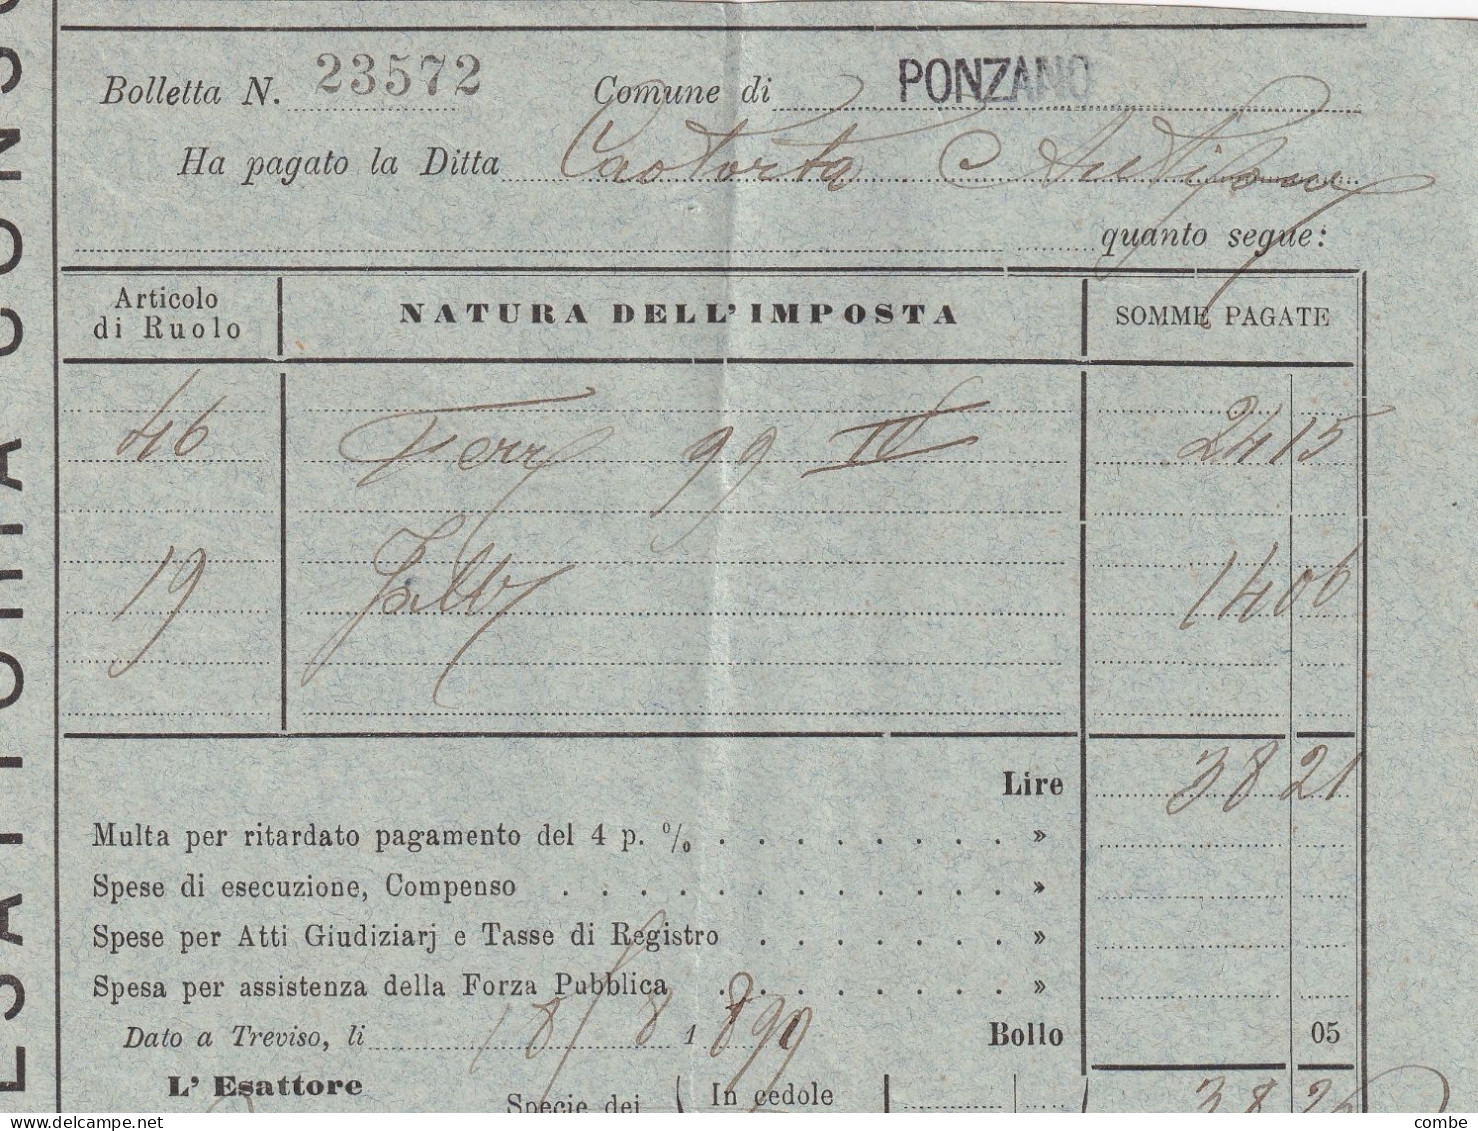 ESATTORIA CONS
Bolletta N. 23572 Comune di PONZANO
Ha pagato la Ditta Caotorta Antigone
quanto segue:
Articolo di Ruolo NATURA DELL'IMPOSTA SOMME PAGATE
46 Terr 99 IV 24 15
19 Fabb 14 06
Lire 38 21
Multa per ritardato pagamento del 4 p. % . . . . . . . . »
Spese di esecuzione, Compenso . . . . . . . . . . . »
Spese per Atti Giudiziarj e Tasse di Registro . . . . . . . »
Spesa per assistenza della Forza Pubblica . . . . . . . . »
Dato a Treviso, li 18/8 1899 Bollo 05
L' Esattore
Specie dei In cedole 38 26
www.delcampe.net combe